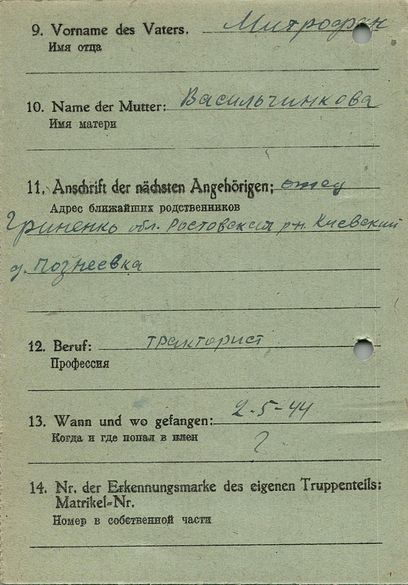 9. Vorname des Vaters. Митрофан
Имя отца
10. Name der Mutter: Васильчинкова
Имя матери
11. Anschrift der nächsten Angehörigen; отец
Адрес ближайших родственников
Гриненко обл. Ростовская рн. Киевский
д. Познеевка
12. Beruf: тракторист
Профессия
13. Wann und wo gefangen: 2-5-44
Когда и где попал в плен ?
14. Nr. der Erkennungsmarke des eigenen Truppenteils:
Matrikel-Nr.
Номер в собственной части